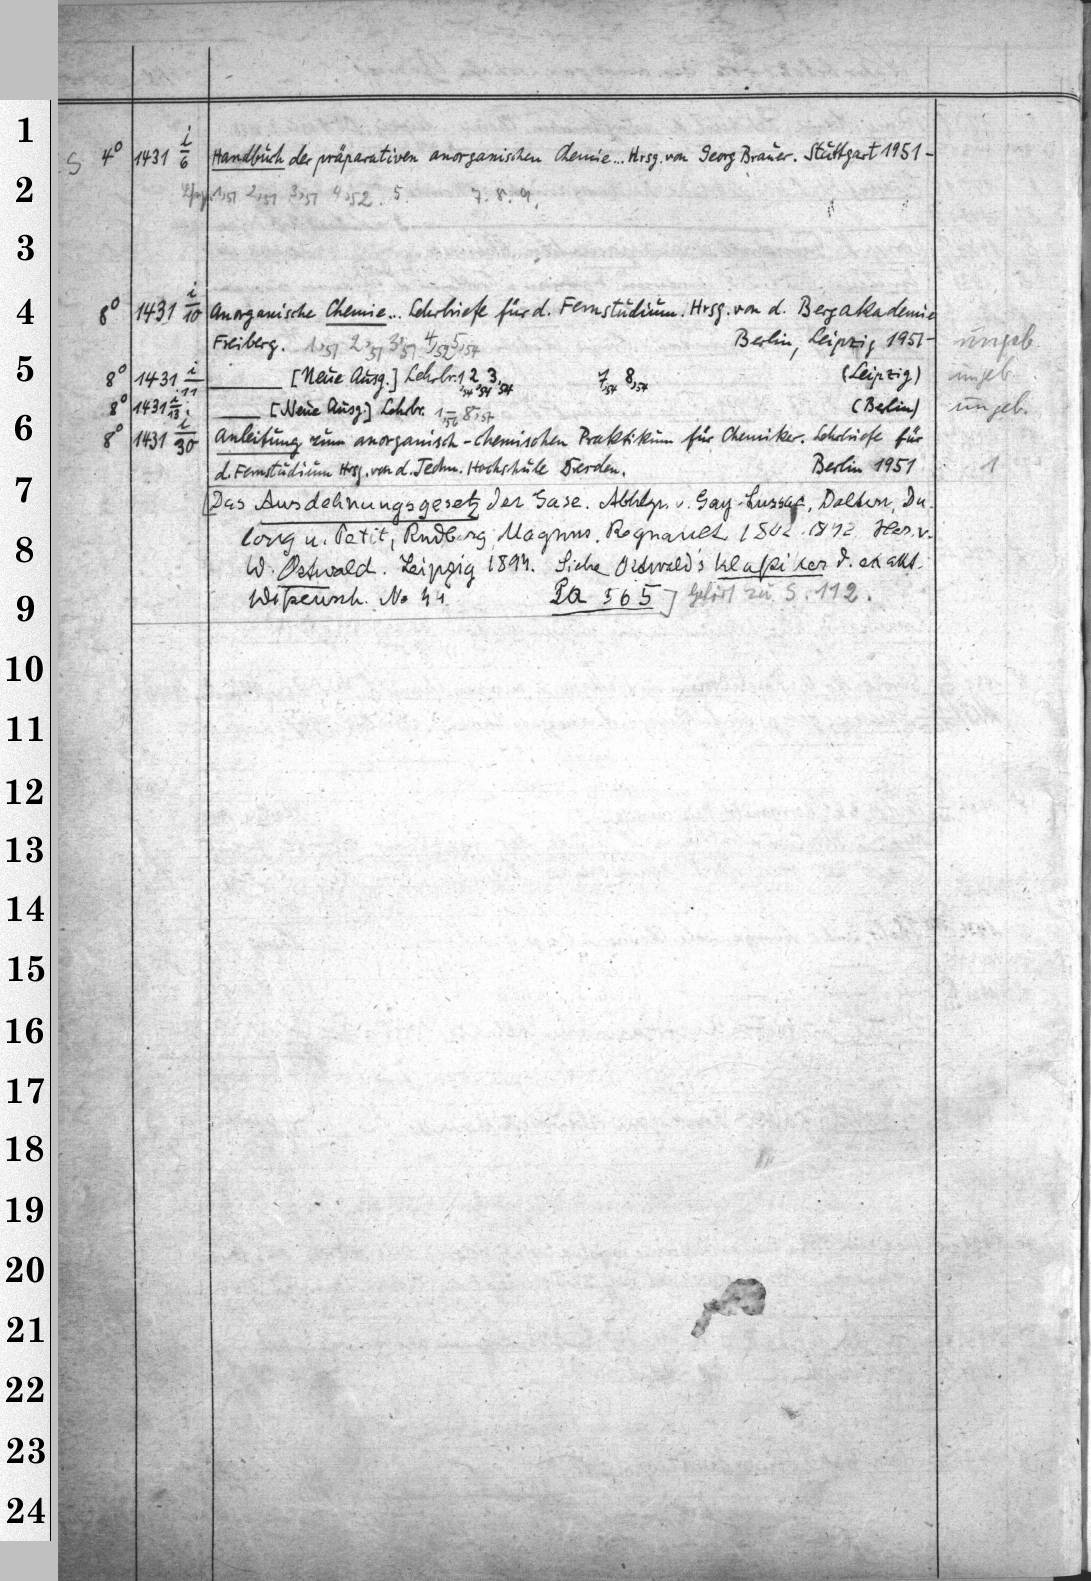 1
S 4° 1431 i/6 Handbuch der präparativen anorganischen Chemie... Hrsg. von Georg Brauer. Stuttgart 1951-
2
1,51 2,51 3,51 4,52. 5. 7. 8. 9.
3
4
8° 1431 i/10 Anorganische Chemie... Lehrbriefe für d. Fernstudium. Hrsg. von d. Bergakademie
Freiberg. 1,51 2,51 3,51 4,52 5,54 Berlin, Leipzig 1951- ungeb.
5
8° 1431 i/11 ____ [Neue Ausg.] Lehrbr. 1,54 2,54 3,54 7,54 8,54 (Leipzig) ungeb.
8° 1431 i/13. ____ [Neue Ausg.] Lehrbr. 1,56 8,57 (Berlin) ungeb.
6
8° 1431 i/30 Anleitung zum anorganisch-chemischen Praktikum für Chemiker. Lehrbriefe für
d. Fernstudium Hrsg. von d. Techn. Hochschule Dresden. Berlin 1951 1
7
[Das Ausdehnungsgesetz der Gase. Abhlgn. v. Gay-Lussac, Dalton, Du-
8
long u. Petit, Rudberg, Magnus, Regnault 1802-1842 Her. v.
W. Ostwald. Leipzig 1894. Siehe Ostwald's Klassiker d. exakt.
9
Wissensch. No 44 Pa 565] Gehört zu S. 112.
10
11
12
13
14
15
16
17
18
19
20
21
22
23
24